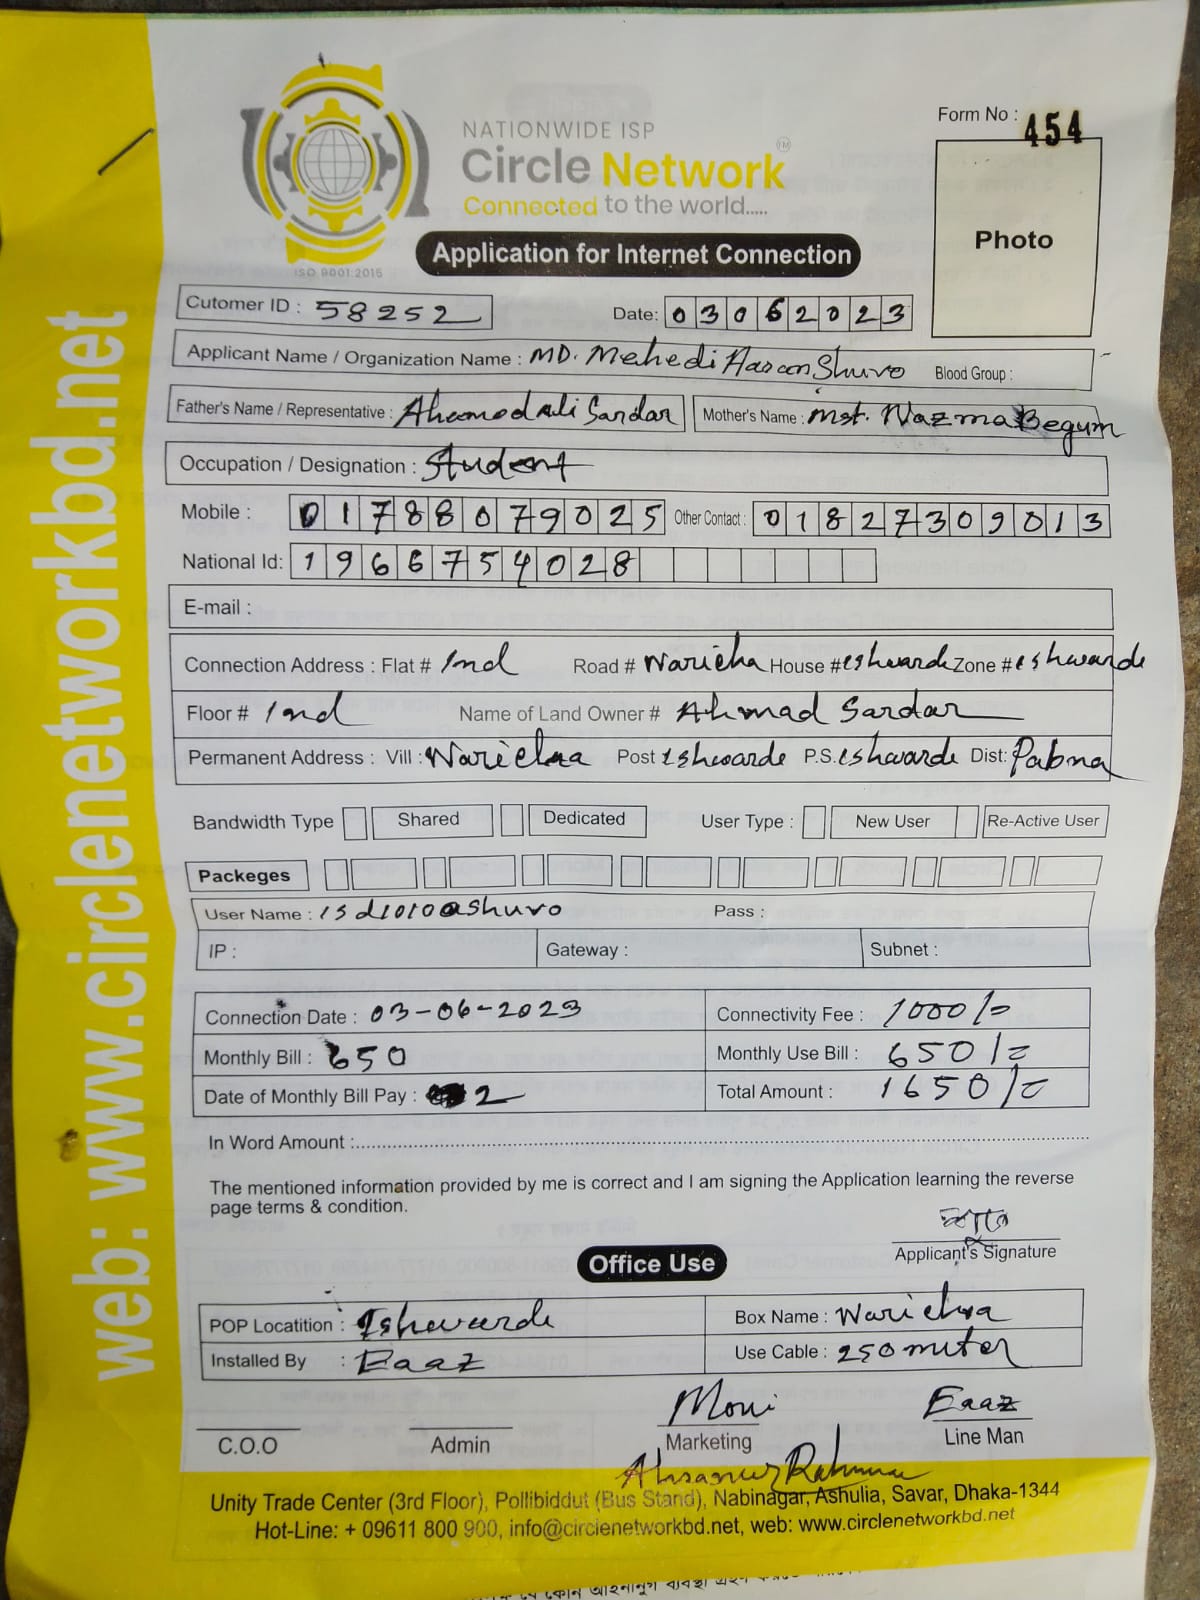 Form No : 454
NATIONWIDE ISP
Circle Network TM
Connected to the world.....
ISO 9001:2015
Photo
Application for Internet Connection
Cutomer ID : 58252 Date: 03062023
Applicant Name / Organization Name : MD. Mehedi Hasan Shuvo Blood Group :
Father's Name / Representative : Ahamod Ali Sardar Mother's Name : Mst. Nazma Begum
Occupation / Designation : Student
Mobile : 01788079025 Other Contact : 01827309013
National Id: 1966754028
E-mail :
Connection Address : Flat # 1nd Road # Waricha House # eshwarde Zone # eshwarde
Floor # 1nd Name of Land Owner # Ahmad Sardar
Permanent Address : Vill : Waricha Post eshwarde P.S. eshwarde Dist: Pabna
Bandwidth Type Shared Dedicated User Type : New User Re-Active User
Packeges
User Name : isd1010@shuvo Pass :
IP : Gateway : Subnet :
Connection Date : 03-06-2023 Connectivity Fee : 1000/=
Monthly Bill : 650 Monthly Use Bill : 650/=
Date of Monthly Bill Pay : 2 Total Amount : 1650/=
In Word Amount :
The mentioned information provided by me is correct and I am signing the Application learning the reverse
page terms & condition.
Applicant's Signature
Office Use
POP Locatition : Ishwarde Box Name : Waricha
Installed By : Eaaz Use Cable : 250 miter
Moni Eaaz
C.O.O Admin Marketing Line Man
Ahsanur Rahman
Unity Trade Center (3rd Floor), Pollibiddut (Bus Stand), Nabinagar, Ashulia, Savar, Dhaka-1344
Hot-Line: + 09611 800 900, info@circlenetworkbd.net, web: www.circlenetworkbd.net
web: www.circlenetworkbd.net